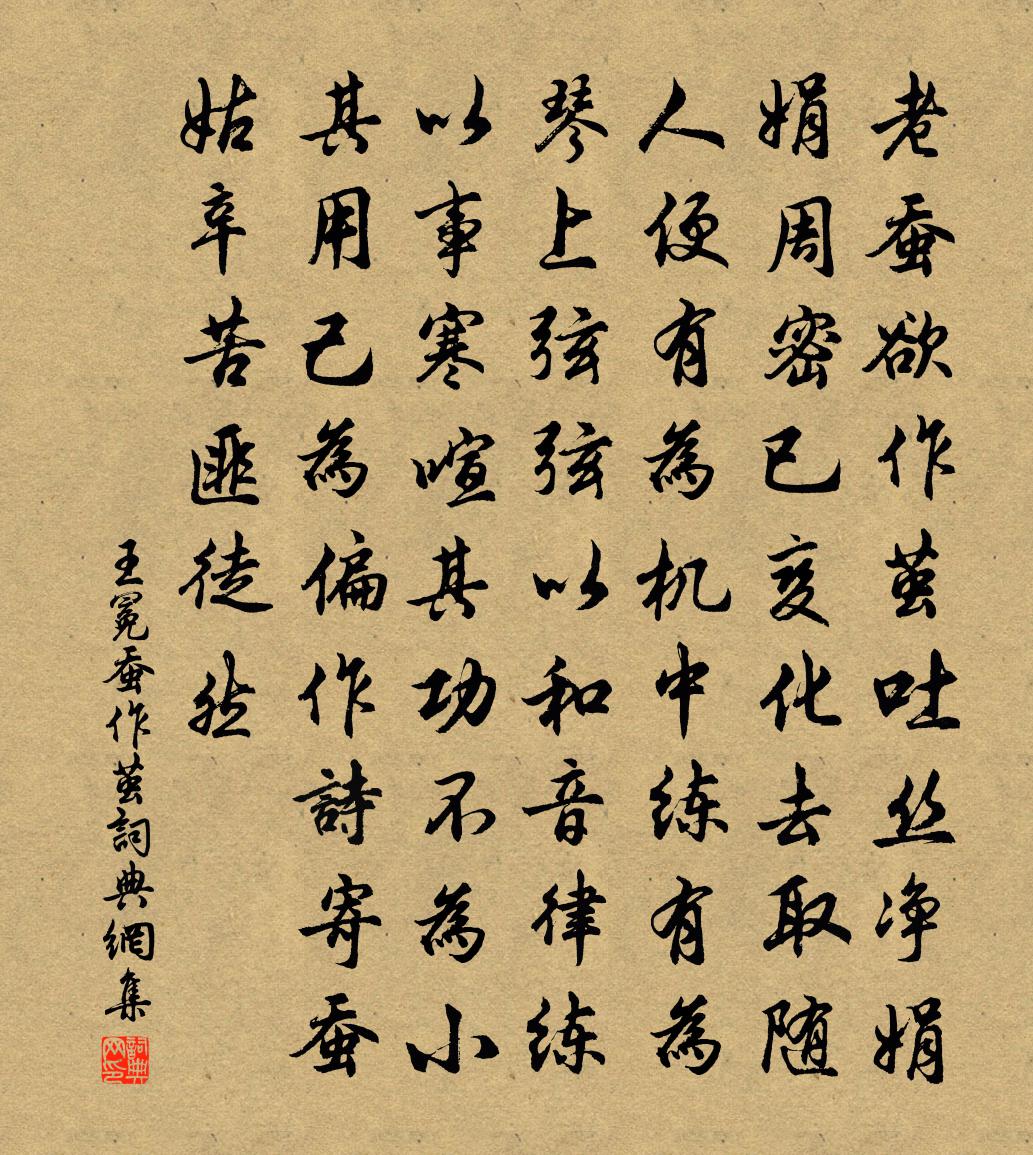 老蚕欲作茧吐丝净娟
娟周密已变化去取随
人便有為机中练有為
琴上弦弦以和音律练
以事寒喧其功不為小
其用已為偏作詩寄蚕
姑辛苦匪徒然
王冕蚕作茧詞典網集
詞典网印